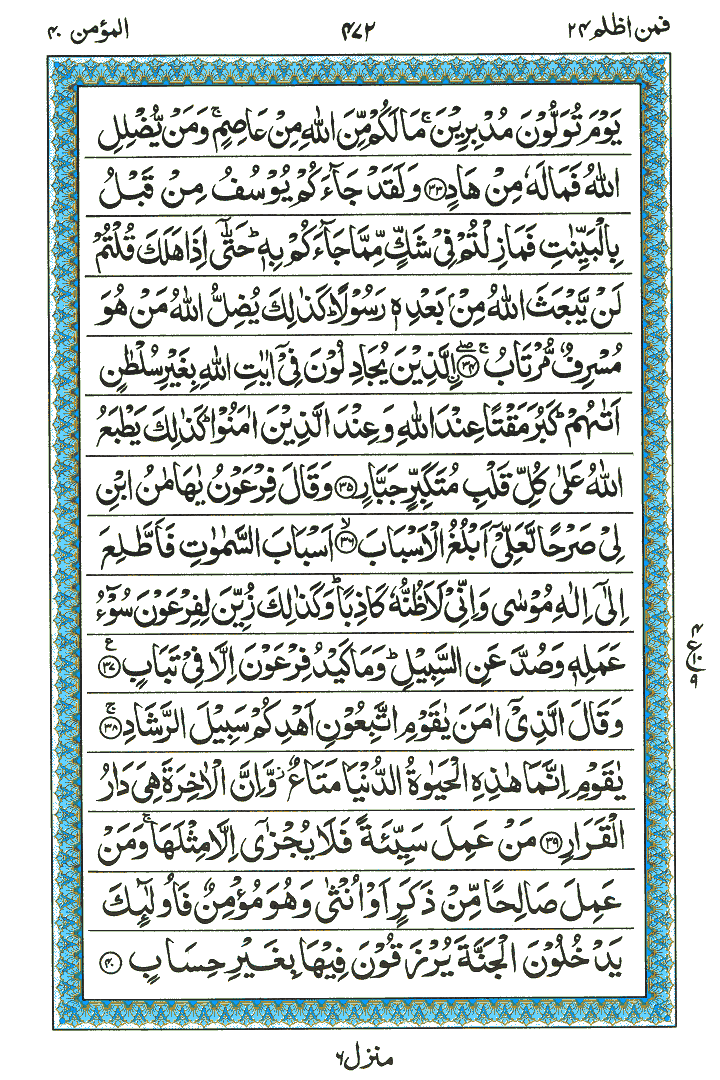 فمن اظلم ٢٤
٤٧٢
المؤمن ٤٠
يَوْمَ تُوَلُّوْنَ مُدْبِرِيْنَ ۚ مَا لَكُمْ مِّنَ اللّٰهِ مِنْ عَاصِمٍ ۚ وَمَنْ يُّضْلِلِ
اللّٰهُ فَمَا لَهٗ مِنْ هَادٍ ﴿٣٣﴾ وَلَقَدْ جَآءَكُمْ يُوْسُفُ مِنْ قَبْلُ
بِالْبَيِّنٰتِ فَمَا زِلْتُمْ فِيْ شَكٍّ مِّمَّا جَآءَكُمْ بِهٖ ؕ حَتّٰٓى اِذَا هَلَكَ قُلْتُمْ
لَنْ يَّبْعَثَ اللّٰهُ مِنْۢ بَعْدِهٖ رَسُوْلًا ؕ كَذٰلِكَ يُضِلُّ اللّٰهُ مَنْ هُوَ
مُسْرِفٌ مُّرْتَابُ ۚۖ ﴿٣٤﴾ ۨالَّذِيْنَ يُجَادِلُوْنَ فِيْٓ اٰيٰتِ اللّٰهِ بِغَيْرِ سُلْطٰنٍ
اَتٰىهُمْ ؕ كَبُرَ مَقْتًا عِنْدَ اللّٰهِ وَعِنْدَ الَّذِيْنَ اٰمَنُوْا ؕ كَذٰلِكَ يَطْبَعُ
اللّٰهُ عَلٰى كُلِّ قَلْبِ مُتَكَبِّرٍ جَبَّارٍ ﴿٣٥﴾ وَقَالَ فِرْعَوْنُ يٰهَامٰنُ ابْنِ
لِيْ صَرْحًا لَّعَلِّيْٓ اَبْلُغُ الْاَسْبَابَ ۙ ﴿٣٦﴾ اَسْبَابَ السَّمٰوٰتِ فَاَطَّلِعَ
اِلٰٓى اِلٰهِ مُوْسٰى وَاِنِّيْ لَاَظُنُّهٗ كَاذِبًا ؕ وَكَذٰلِكَ زُيِّنَ لِفِرْعَوْنَ سُوْٓءُ
عَمَلِهٖ وَصُدَّ عَنِ السَّبِيْلِ ؕ وَمَا كَيْدُ فِرْعَوْنَ اِلَّا فِيْ تَبَابٍ ﴿٣٧﴾ ع
٤
ع ١٠
٩
وَقَالَ الَّذِيْٓ اٰمَنَ يٰقَوْمِ اتَّبِعُوْنِ اَهْدِكُمْ سَبِيْلَ الرَّشَادِ ۚ ﴿٣٨﴾
يٰقَوْمِ اِنَّمَا هٰذِهِ الْحَيٰوةُ الدُّنْيَا مَتَاعٌ ؗ وَّاِنَّ الْاٰخِرَةَ هِيَ دَارُ
الْقَرَارِ ﴿٣٩﴾ مَنْ عَمِلَ سَيِّئَةً فَلَا يُجْزٰٓى اِلَّا مِثْلَهَا ۚ وَمَنْ
عَمِلَ صَالِحًا مِّنْ ذَكَرٍ اَوْ اُنْثٰى وَهُوَ مُؤْمِنٌ فَاُولٰٓئِكَ
يَدْخُلُوْنَ الْجَنَّةَ يُرْزَقُوْنَ فِيْهَا بِغَيْرِ حِسَابٍ ﴿٤٠﴾
منزل ٦